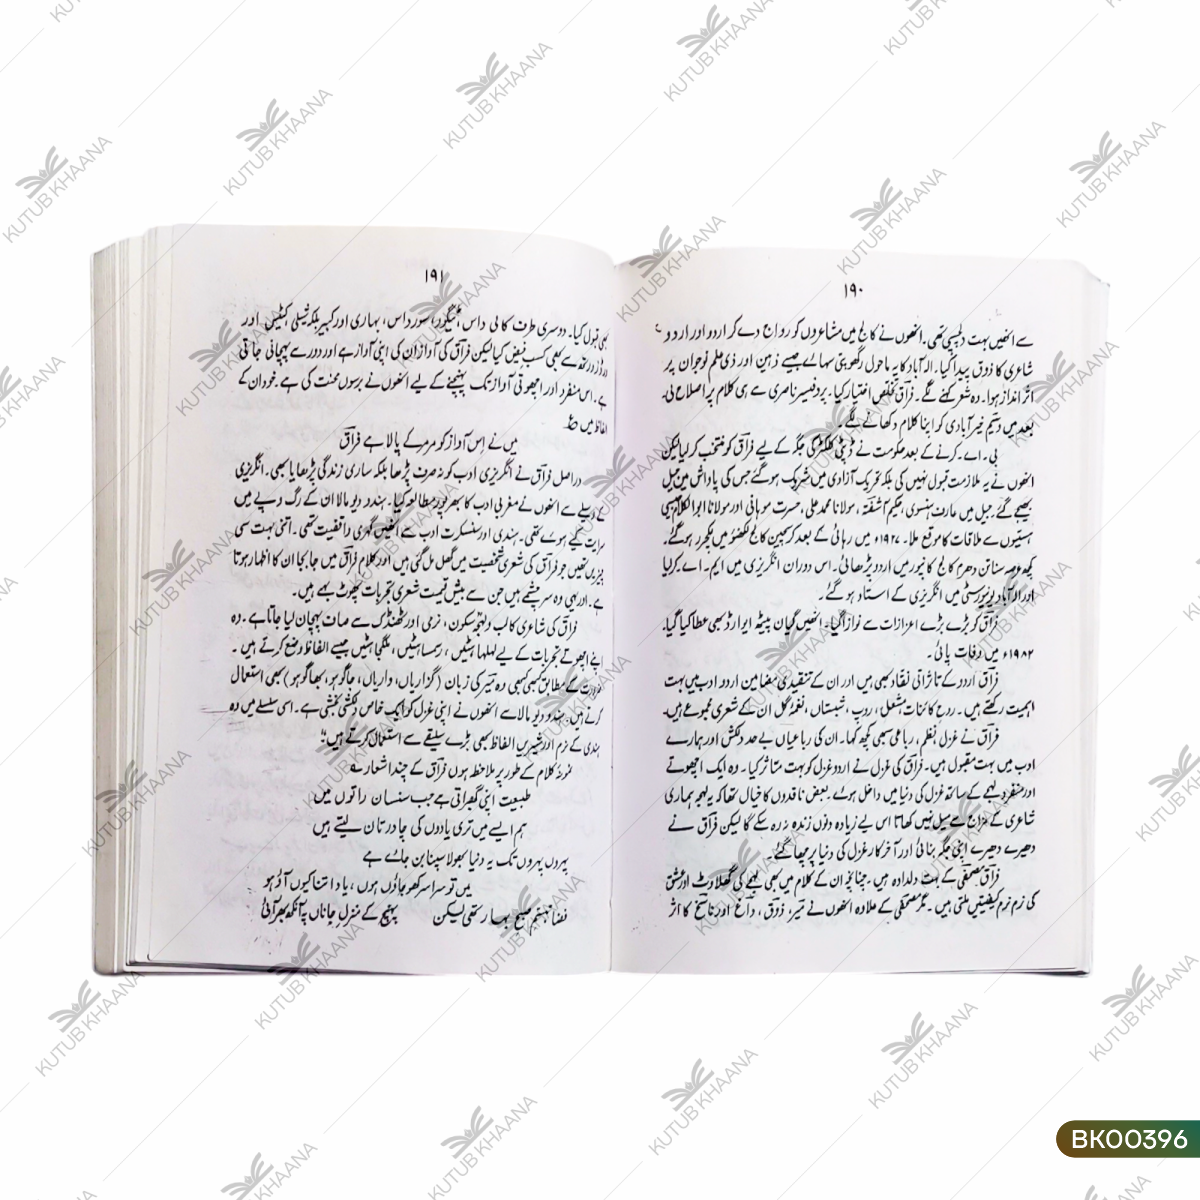 ۱۹۰
سے انھیں بہت دلچسپی تھی۔ انھوں نے کالج میں مشاعروں کو رواج دے کر اردو اور اردو
شاعری کا ذوق پیدا کیا۔ الہ آباد کا یہ ماحول رگھوپتی سہائے جیسے ذہین اور ذی علم نوجوان پر
اثر انداز ہوا۔ وہ شعر کہنے لگے۔ فراق تخلص اختیار کیا۔ پروفیسر ناصری سے ہی کلام پر اصلاح لی۔
بعد میں وسیم خیرآبادی کو اپنا کلام دکھانے لگے۔
بی۔ اے۔ کرنے کے بعد حکومت نے ڈپٹی کلکٹر کی جگہ کے لیے فراق کو منتخب کر لیا لیکن
انھوں نے یہ ملازمت قبول نہیں کی بلکہ تحریک آزادی میں شریک ہو گئے جس کی پاداش میں جیل
بھیجے گئے۔ جیل میں عارف ہنسوی، حکیم آشفتہ، مولانا محمد علی، حسرت موہانی اور مولانا ابوالکلام جیسی
ہستیوں سے ملاقات کا موقع ملا۔ ۱۹۲۴ء میں رہائی کے بعد کرسچین کالج لکھنؤ میں لکچرر ہو گئے۔
کچھ عرصہ سناتن دھرم کالج کانپور میں اردو پڑھائی۔ اس دوران انگریزی میں ایم۔ اے کر لیا
اور الہ آباد یونیورسٹی میں انگریزی کے استاد ہو گئے۔
فراق کو بڑے بڑے اعزازات سے نوازا گیا۔ انھیں گیان پیٹھ ایوارڈ بھی عطا کیا گیا۔
۱۹۸۲ء میں وفات پائی۔
فراق اردو کے تاثراتی نقاد بھی ہیں اور ان کے تنقیدی مضامین اردو ادب میں بہت
اہمیت رکھتے ہیں۔ روح کائنات، مشعل، روپ، شبستاں، نغمۂ گل ان کے شعری مجموعے ہیں۔
فراق نے غزل، نظم، رباعی سبھی کچھ کہا۔ ان کی رباعیاں بے حد دلکش اور ہمارے
ادب میں بہت مقبول ہیں۔ فراق کی غزل نے اردو غزل کو بہت متاثر کیا۔ وہ ایک اچھوتے
اور منفرد لہجے کے ساتھ غزل کی دنیا میں داخل ہوئے۔ بعض ناقدوں کا خیال تھا کہ یہ لہجہ ہماری
شاعری کے مزاج سے میل نہیں کھاتا اس لیے زیادہ دنوں زندہ نہ رہ سکے گا لیکن فراق نے
دھیرے دھیرے اپنی جگہ بنائی اور آخر کار غزل کی دنیا پر چھا گئے۔
فراق مصحفی کے بہت دلدادہ ہیں۔ چنانچہ ان کے کلام میں بھی لہجے کی گھلاوٹ اور عشق
کی نرم نرم کیفیتیں ملتی ہیں۔ مگر مصحفی کے علاوہ انھوں نے میر، ذوق، داغ اور ناسخ کا اثر
۱۹۱
بھی قبول کیا۔ دوسری طرف کالی داس، ٹیگور، سور داس، بہاری اور کبیر بلکہ شیلی، کیٹس اور
ورڈزورتھ سے بھی کسب فیض کیا لیکن فراق کی آواز ان کی اپنی آواز ہے اور دور سے پہچانی جاتی
ہے۔ اس منفرد اور اچھوتی آواز تک پہنچنے کے لیے انھوں نے برسوں محنت کی ہے۔ خود ان کے
الفاظ میں ع
میں نے اس آواز کو مر مر کے پالا ہے فراق
دراصل فراق نے انگریزی ادب کو نہ صرف پڑھا بلکہ ساری زندگی پڑھایا بھی۔ انگریزی
کے وسیلے سے انھوں نے مغربی ادب کا بھرپور مطالعہ کیا۔ ہندو دیو مالا ان کے رگ و پے میں
سرایت کیے ہوئے تھی۔ ہندی اور سنسکرت ادب سے انھیں گہری واقفیت تھی۔ اتنی بہت سی
چیزیں تھیں جو فراق کی شعری شخصیت میں گھل مل گئی ہیں اور کلام فراق میں جا بجا ان کا اظہار ہوتا
ہے۔ اور یہی وہ سرچشمے ہیں جن سے بیش قیمت شعری تجربات پھوٹ بہے ہیں۔
فراق کی شاعری کا لب و لہجہ سکون، نرمی اور ٹھنڈک سے صاف پہچان لیا جاتا ہے۔ وہ
اپنے اچھوتے تجربات کے لیے لہلہاہٹیں، رسمساہٹیں، ملگجاہٹیں جیسے الفاظ وضع کرتے ہیں۔
ضرورت کے مطابق کبھی کبھی وہ میر کی زبان (گزاریاں، واریاں، جاگو ہو، بھاگو ہو) بھی استعمال
کرتے ہیں۔ ہندو دیو مالا سے انھوں نے اپنی غزل کو ایک خاص دلکشی بخشی ہے۔ اسی سلسلے میں وہ
ہندی کے نرم اور شیریں الفاظ بھی بڑے سلیقے سے استعمال کرتے ہیں۔
نمونۂ کلام کے طور پر ملاحظہ ہوں فراق کے چند اشعار
طبیعت اپنی گھبراتی ہے جب سنسان راتوں میں
ہم ایسے میں تری یادوں کی چادر تان لیتے ہیں
پہروں پہروں تک یہ دنیا بھولا سپنا بن جائے ہے
میں تو سراسر کھو جاؤں ہوں، یاد اتنا کیوں آؤ ہو
فضا تبسم صبح بہار تھی لیکن پہنچ کے منزل جاناں پہ آنکھ بھر آئی
KUTUB KHAANA
BK00396